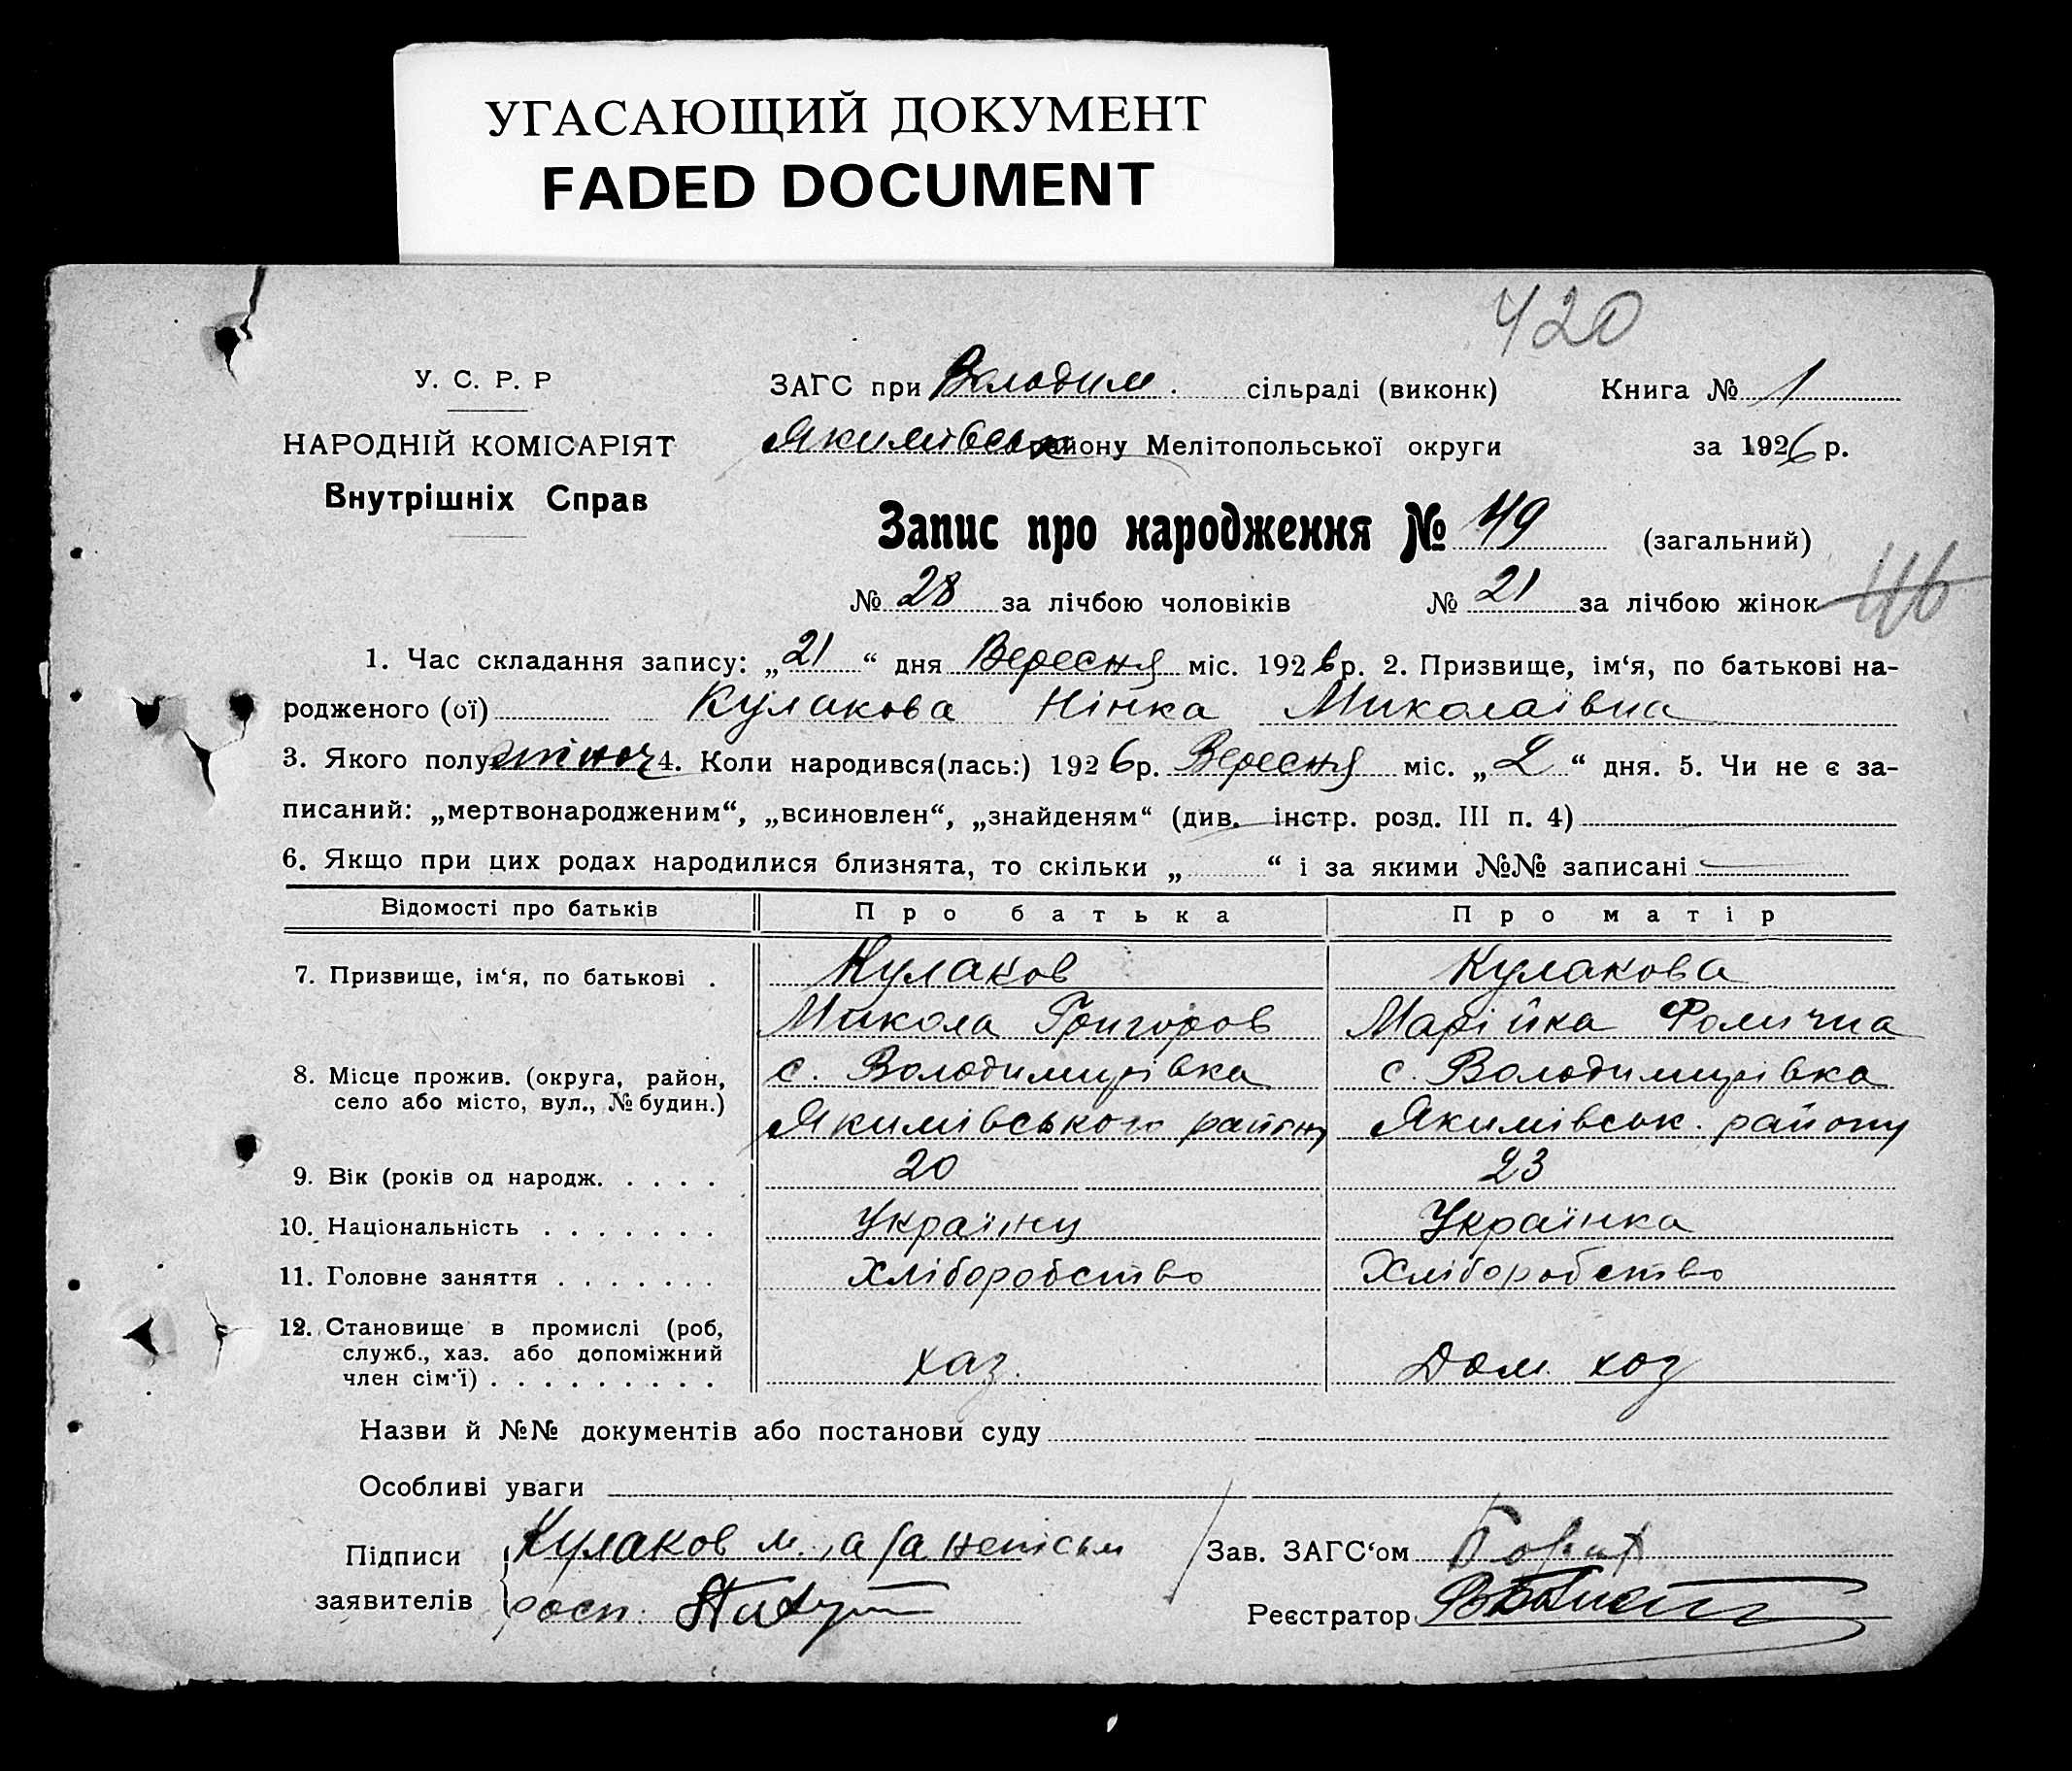 УГАСАЮЩИЙ ДОКУМЕНТ
FADED DOCUMENT
420
У. С. Р. Р
НАРОДНІЙ КОМІСАРІЯТ
Внутрішніх Справ
ЗАГС при Володим. сільраді (виконк) Книга № 1
Якимівськ району Мелітопольської округи за 1926 р.
Запис про народження № 49 (загальний)
№ 28 за лічбою чоловіків № 21 за лічбою жінок
1. Час складання запису: „21“ дня Вересня міс. 1926 р. 2. Призвище, ім‘я, по батькові на-
родженого (ої) Кулакова Нінка Миколаівна
3. Якого полу жіноч 4. Коли народився(лась:) 1926 р. Вересня міс. „2“ дня. 5. Чи не є за-
писаний: „мертвонародженим“, „всиновлен“, „знайденям“ (див. інстр. розд. III п. 4)
6. Якщо при цих родах народилися близнята, то скільки „ “ і за якими №№ записані
Відомості про батьків Про батька Про матір
7. Призвище, ім‘я, по батькові . Кулаков Кулакова
Микола Григоров Марійка Фомична
8. Місце прожив. (округа, район, с. Володимирівка с. Володимирівка
село або місто, вул., № будин.) Якимівського району Якимівськ. району
9. Вік (років од народж. . . . . 20 23
10. Національність . . . . . . . Українец Українка
11. Головне заняття . . . . . . . Хліборобство Хліборобство
12. Становище в промислі (роб,
служб., хаз. або допоміжний хаз. Дом. хоз
член сім‘ї) . . . . . . . . .
Назви й №№ документів або постанови суду
Особливі уваги
Підписи Кулаков М., а за неписьм Зав. ЗАГС‘ом
заявителів росп. Реєстратор